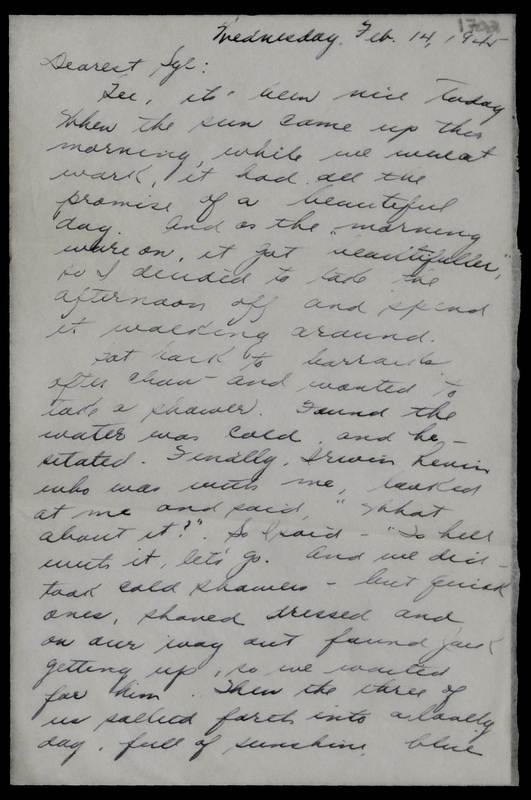 Wednesday, Feb. 14, 1945
Dearest Syl:
Gee, its' been nice today
When the sun came up this
morning, while we were at
work, it had all the
promise of a beautiful
day. And as the morning
wore on, it got "beautifuller,"
so I decided to take the
afternoon off and spend
it walking around.
Got back to barracks
after chow - and wanted to
take a shower. Found the
water was cold, and he-
sitated. Finally, Irwin Levin
who was with me, looked
at me and said, "What
about it?". So I said - "To hell
with it, let's go. And we did -
took cold showers - but quick
ones, shaved dressed and
on our way out found Jack
getting up, so we waited
for him. Then the three of
us sallied forth into a lovely
day, full of sunshine, blue